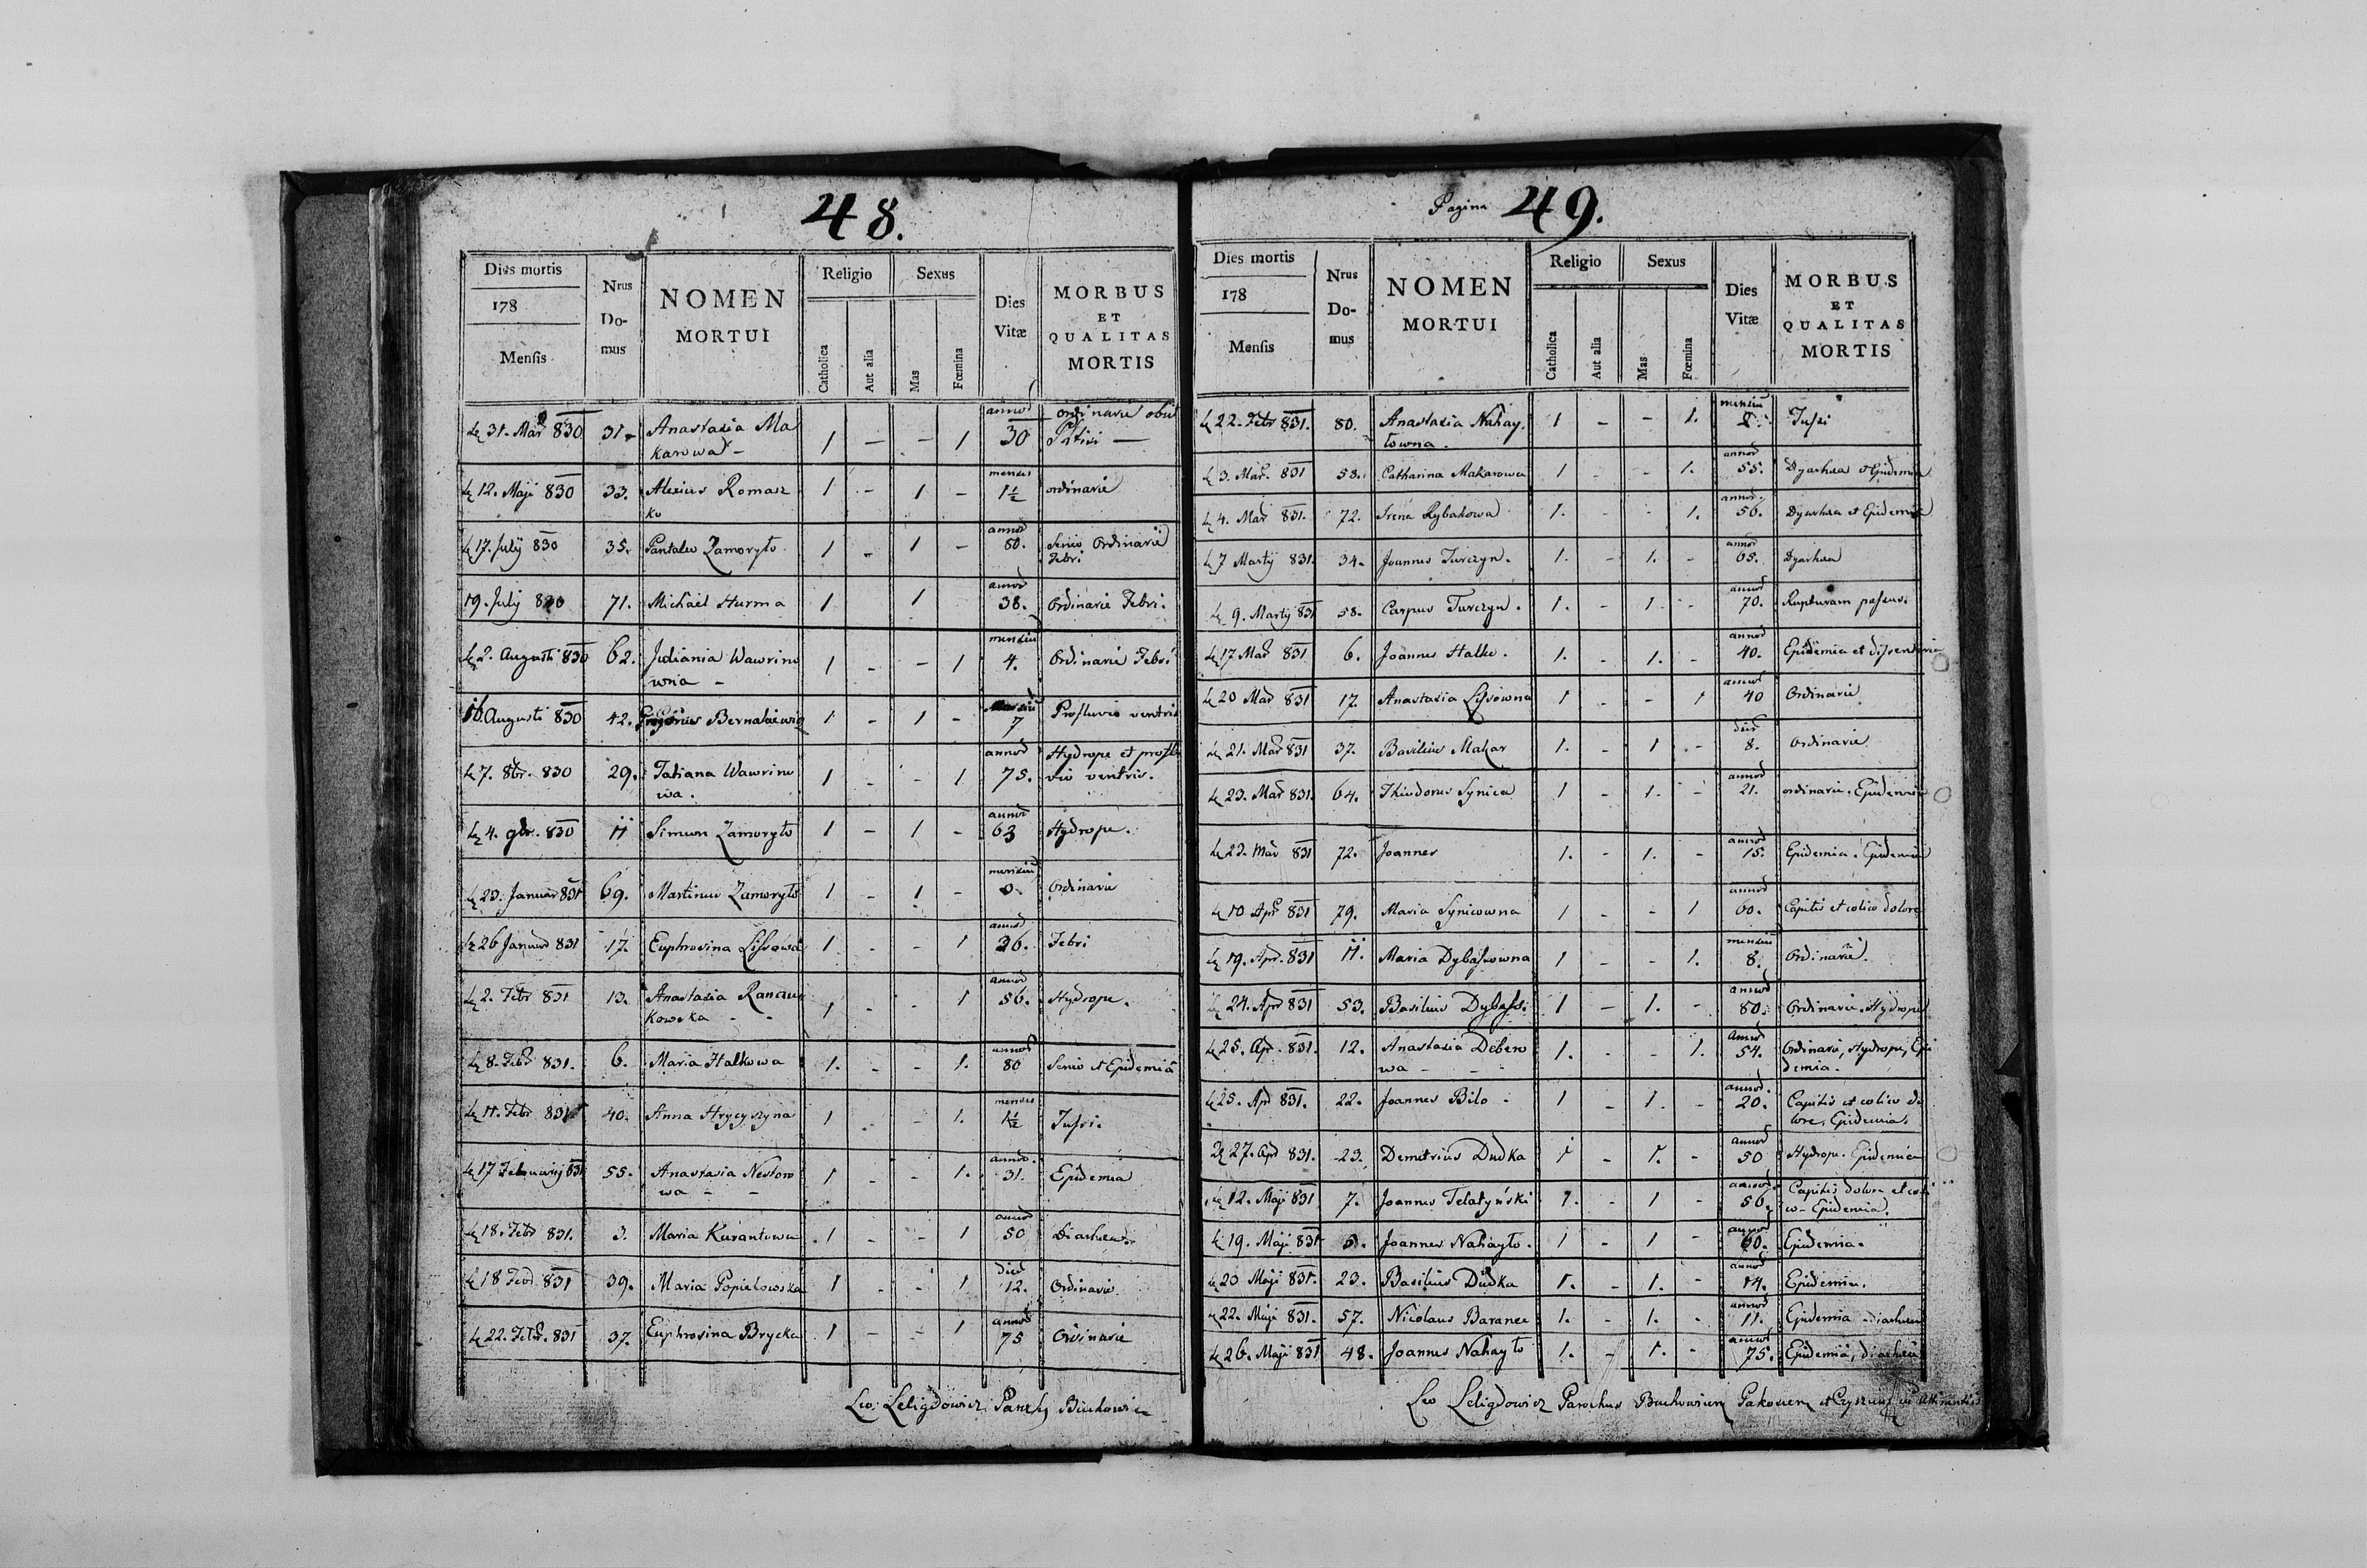 48.
Dies mortis
178
Mensis
Nrus
Do-
mus
NOMEN
MORTUI
Religio
Catholica
Aut alia
Sexus
Mas
Fœmina
Dies
Vitæ
MORBUS
ET
QUALITAS
MORTIS
31. Mar 830 31 Anastasia Ma 1 - - 1 annor 30 ordinarie obiit
karowa -
12. Maji 830 33. Alexius Romasz 1 - 1 - menses 1½ ordinarie
ko
17. July 830 35. Pantaleo Zamoryło 1 - 1 - annor 60. Senio Ordinarie
Febri
19. July 830 71. Michael Hurma 1 1 annor 38. Ordinarie Febri.
2. Augusti 830 62. Juliania Wawrino 1 - - 1 mensium 4. Ordinarie Febri
wna -
16. Augusti 830 42. Bernakiewicz 1 - 1 - 7 Profluvio ventris
7. 8br. 830 29. Tatiana Wawrino 1 - - 1 annor 75. Hydrope et proflu
wa. vio ventris.
4. 9br. 830 11 Simeon Zamoryło 1 - 1 - annor 63 Hydrope.
23. Januar 831 69. Martinus Zamoryło 1 - 1 - mensium Ordinarie
26 Januar 831 17. Euphrosina Lissowa 1 - - 1 annor 36. Febri
2. Febr 831 13. Anastasia 1 - - 1 annor 56. Hydrope.
kowska - -
8. Febr 831. 6. Maria Halkowa 1. - - 1. annor 80 Senio et Epidemia
11. Febr 831 40. Anna Hrycyszyna 1 - - 1. menses 1½ Tussi.
17 Februarij 831 55. Anastasia Nestoro 1 - - 1. annor. 31. Epidemia
wa - -
18. Febr 831. 3. Maria Kurantowa 1 - - 1 annor 50 Diarhea.
18 Febr. 831 39. Maria Popielowska 1 - - 1 dier 12. Ordinarie.
22. Febr. 831 37. Euphrosina Brycka 1 - - 1 annor 75 Ordinarie
Leo Leligdowicz
Pagina 49.
Dies mortis
178
Mensis
Nrus
Do-
mus
NOMEN
MORTUI
Religio
Catholica
Aut alia
Sexus
Mas
Fœmina
Dies
Vitæ
MORBUS
ET
QUALITAS
MORTIS
22. Febr 831. 80. Anastasia Nahay 1 - - 1. mensium Tussi
łowna.
3. Mar. 831 58. Catharina Makarowa 1 - - 1. annor 55. Dyarhea et Epidemia
4. Mar 831. 72. Irena Rybakowa 1. - - 1. annor. 56. Dyarhea et Epidemia
7 Martij 831. 34. Joannes Turczyn. 1. - 1. - annor 65. Dyarhea
9. Martij 831 58. Carpus Turczyn. 1. - 1. - annor 70. Rupturam passus.
17 Mar 831 6. Joannes Halko. 1. - 1. - annor 40. Epidemia et dissenteria
20 Mar 831 17. Anastasia Lissowna 1 - - 1 annor 40 Ordinarie
21. Mar 831 37. Basilius Makar 1. - 1 - dier 8. Ordinarie
23. Mar 831. 64. Theodorus Synica 1 - 1. - annor 21. ordinarie. Epidemia
23. Mar 831 72. Joannes 1. - 1. - annor 15. Epidemia. Epidemia
10 Apr 831 79. Maria Synicowna 1 - - 1 annor 60. Capitis et colico dolore
19. Apr. 831 11. Maria Dybassowna 1 - - 1. mensium 8. Ordinarie.
24. Apr 831 53. Basilius Dybass. 1 - 1. - annor 80. Ordinarie. Hydrope
25. Apr. 831. 12. Anastasia Debero 1. - - 1. annor 54. Ordinarie, Hydrope, Epi
wa - - demia.
25. Apr 831. 22. Joannes Bilo - 1 - 1. - annor. 20. Capitis et colico do
lore, Epidemia.
27. Apr 831. 23. Demetrius Dudka 1 - 1. - annor 50 Hydrope. Epidemia
12. Maji 831 7. Joannes Telatyński 1. - 1 - annor. 56. Capitis dolore et coli
co - Epidemia.
19. Maji 831 5. Joannes Nahayło. 1 - 1 - annor 60. Epidemia.
20 Maji 831. 23. Basilius Dudka 1. - 1. - annor 14. Epidemia.
22. Maji 831. 57. Nicolaus Baranec 1. - 1. - annor 11. Epidemia - diarhea
26. Maji 831 48. Joannes Nahayło 1. - 1. - annor 75. Epidemia, diarhea
Leo Leligdowicz Parochus